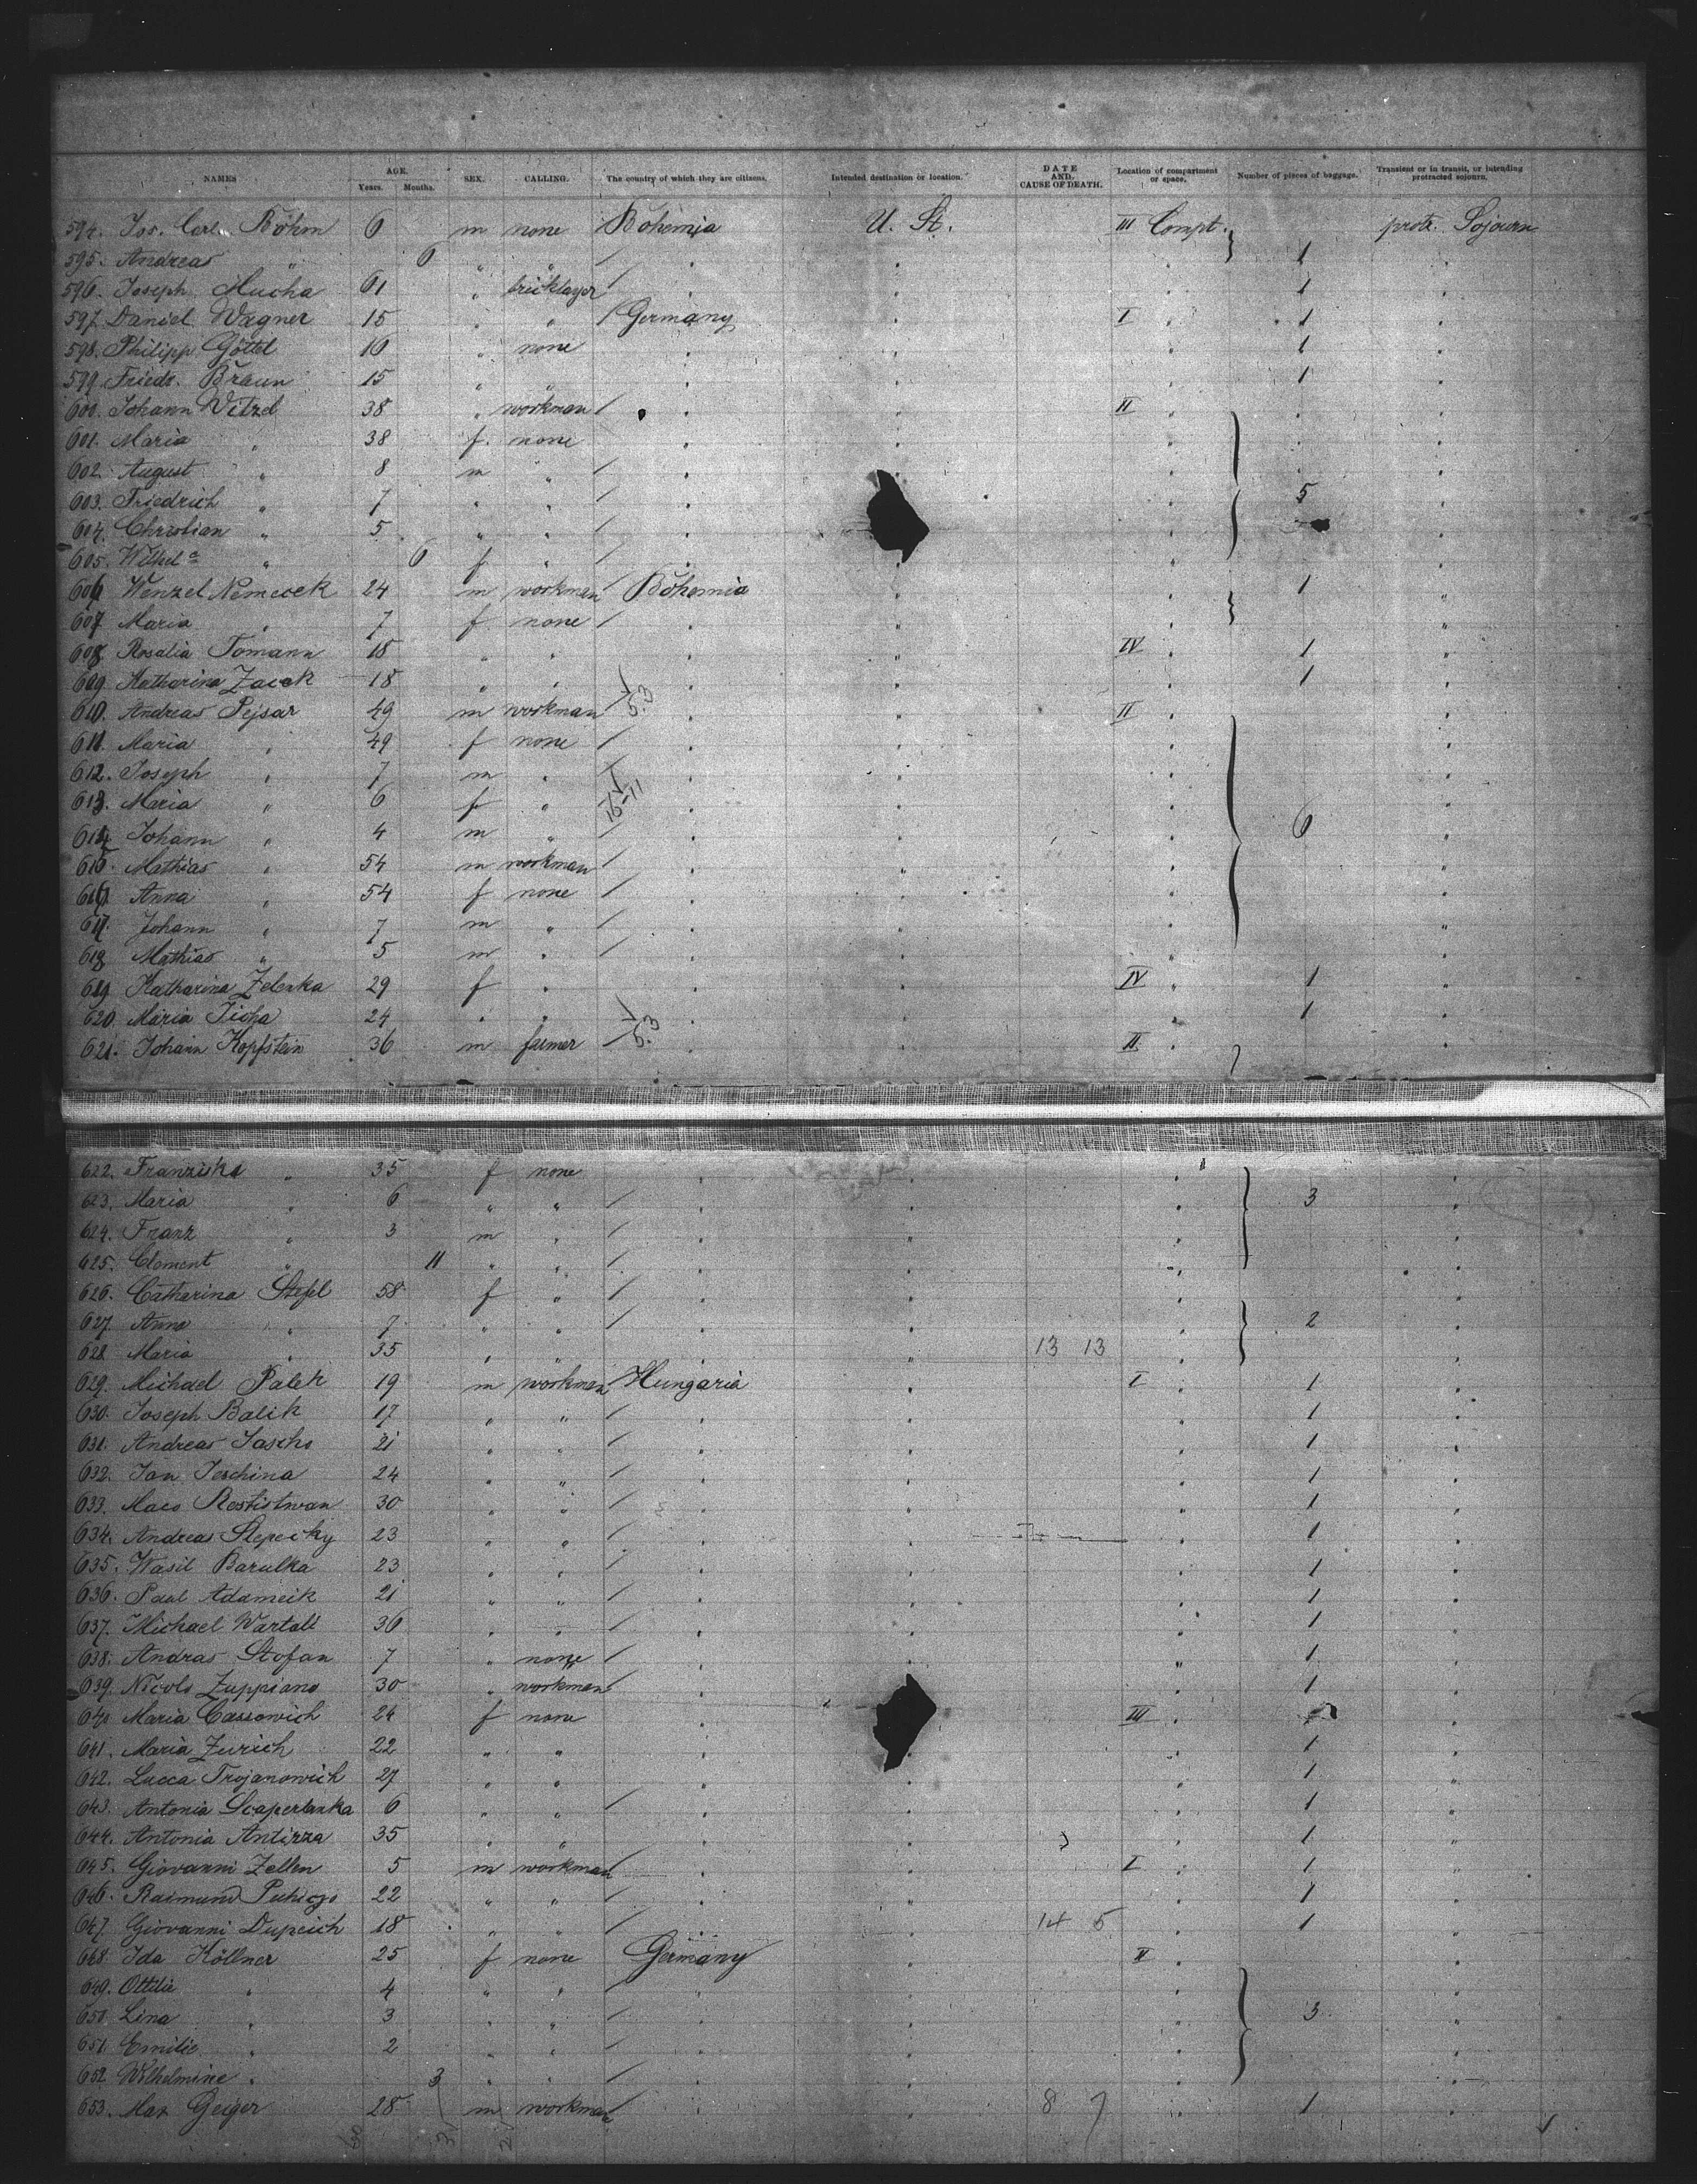 NAMES AGE. Years. Months. SEX. CALLING. The country of which they are citizens. Intended destination or location. DATE AND. CAUSE OF DEATH. Location of compartment or space. Number of pieces of baggage. Transient or in transit, or intending protracted sojourn.
594. Jos. Carl Böhm 6 m none Bohemia U. St. III Compt. protr. Sojourn
595. Andreas " 6 " " 1
596. Joseph Mucha 61 " bricklayer 1
597. Daniel Wagner 15 " " Germany I 1
598. Philipp Göttel 16 " none 1
599. Friedr. Braun 15 " " 1
600. Johann Vitzel 38 " workman II
601. Maria " 38 f. none
602. August " 8 m "
603. Friedrich " 7 " " 5
604. Christian " 5 " "
605. Wilhel a " 6 f "
606 Wenzel Nemecek 24 m workman Bohemia 1
607 Maria " 7 f. none
608 Rosalia Tomann 18 " " IV 1
609 Katharina Zacek 18 " " 1
610. Andreas Pejsar 49 m workman 5.3 II
611. Maria " 49 f none
612. Joseph " 7 m "
613. Maria " 6 f " 16-11
614 Johann " 4 m " 6
615. Mathias " 54 m workman
616 Anna " 54 f none
617. Johann " 7 m "
618 Mathias " 5 m "
619 Katharina Zelenka 29 f " IV 1
620. Maria Ticha 24 " " 1
621. Johann Kopfstein 36 m farmer 5.3 II
622. Franziska " 35 f none
623. Maria " 6 " " 3
624. Franz " 3 m "
625. Clement " 11 " "
626. Catharina Stefel 58 f "
627. Anna " 7 " " 2
628 Maria " 35 " " 13 13
629. Michael Palek 19 m workman Hungaria I 1
630. Joseph Balik 17 " " 1
631. Andreas Jascho 21 " " 1
632. Jan Jeschina 24 " " 1
633. Maco Restistwan 30 " " 1
634. Andreas Slepecky 23 " " 1
635. Wasil Barulka 23 " " 1
636. Paul Adamcik 21 " " 1
637. Michael Wartall 36 " " 1
638. Andras Stofan 7 " none 1
639. Nicolo Zuppiano 30 " workman 1
640. Maria Cassowich 24 f none III
641. Maria Zurich 22 " " 1
642. Lucca Trojanowich 27 " " 1
643. Antonia Scaperlanka 6 " " 1
644. Antonia Antizza 35 " " 1
645. Giovanni Zellen 5 m workman I 1
646. Raimund 22 " " 1
647. Giovanni Dupcich 18 " " 14 5 1
648. Ida Köllner 25 f none Germany II
649. Ottilie " 4 " "
650. Lina " 3 " " 3
651. Emilie " 2 " "
652 Wilhelmine " 3 " "
653. Max Geiger 28 m workman 8 7 1